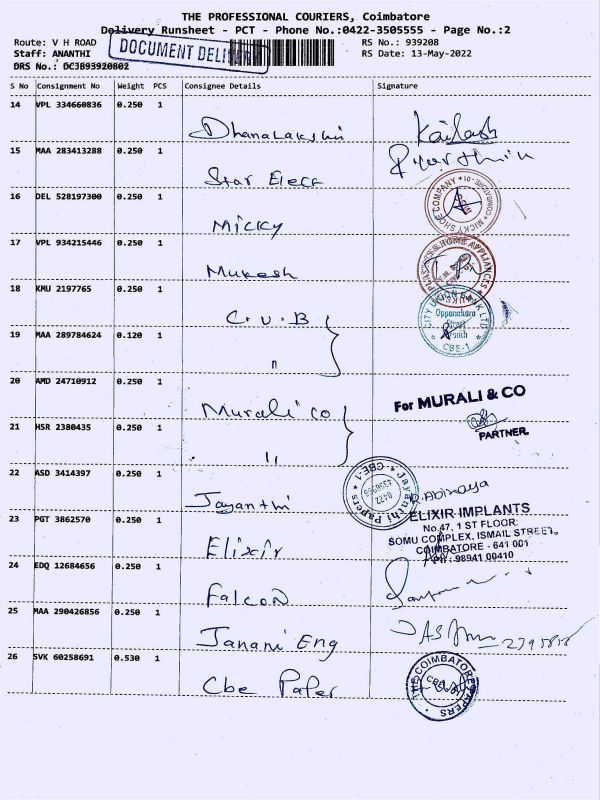 THE PROFESSIONAL COURIERS, Coimbatore
Delivery Runsheet - PCT - Phone No.:0422-3505555 - Page No.:2
Route: V H ROAD
RS No.: 939208
Staff: ANANTHI
RS Date: 13-May-2022
DRS No.: DCJB93920802
DOCUMENT DELIVERY
S No Consignment No Weight PCS Consignee Details Signature
14 VPL 334660836 0.250 1
Dhanalakshmi Kailash
15 MAA 283413288 0.250 1
Star Elect
16 DEL 528197300 0.250 1
Micky
MICKY SHOE COMPANY
17 VPL 934215446 0.250 1
Mukesh
& HOME APPLIANCES
18 KMU 2197765 0.250 1
C.U.B
CITY UNION BANK LTD
Oppanakara
Street
Branch
CBE-1
19 MAA 289784624 0.120 1
"
20 AMD 24710912 0.250 1
Murali co
For MURALI & CO
PARTNER.
21 HSR 2380435 0.250 1
"
22 ASD 3414397 0.250 1
Jayanthi
Jayanthi Papers * CBE-1 *
0422
Abinaya
23 PGT 3862570 0.250 1
Elixir
ELIXIR IMPLANTS
No.47, 1 ST FLOOR:
SOMU COMPLEX, ISMAIL STREET,
COIMBATORE - 641 001
PH : 98941 00410
24 EDQ 12684656 0.250 1
Falcon
25 MAA 290426856 0.250 1
Janani Eng
26 SVK 60258691 0.530 1
Cbe Paper
THE COIMBATORE PAPERS